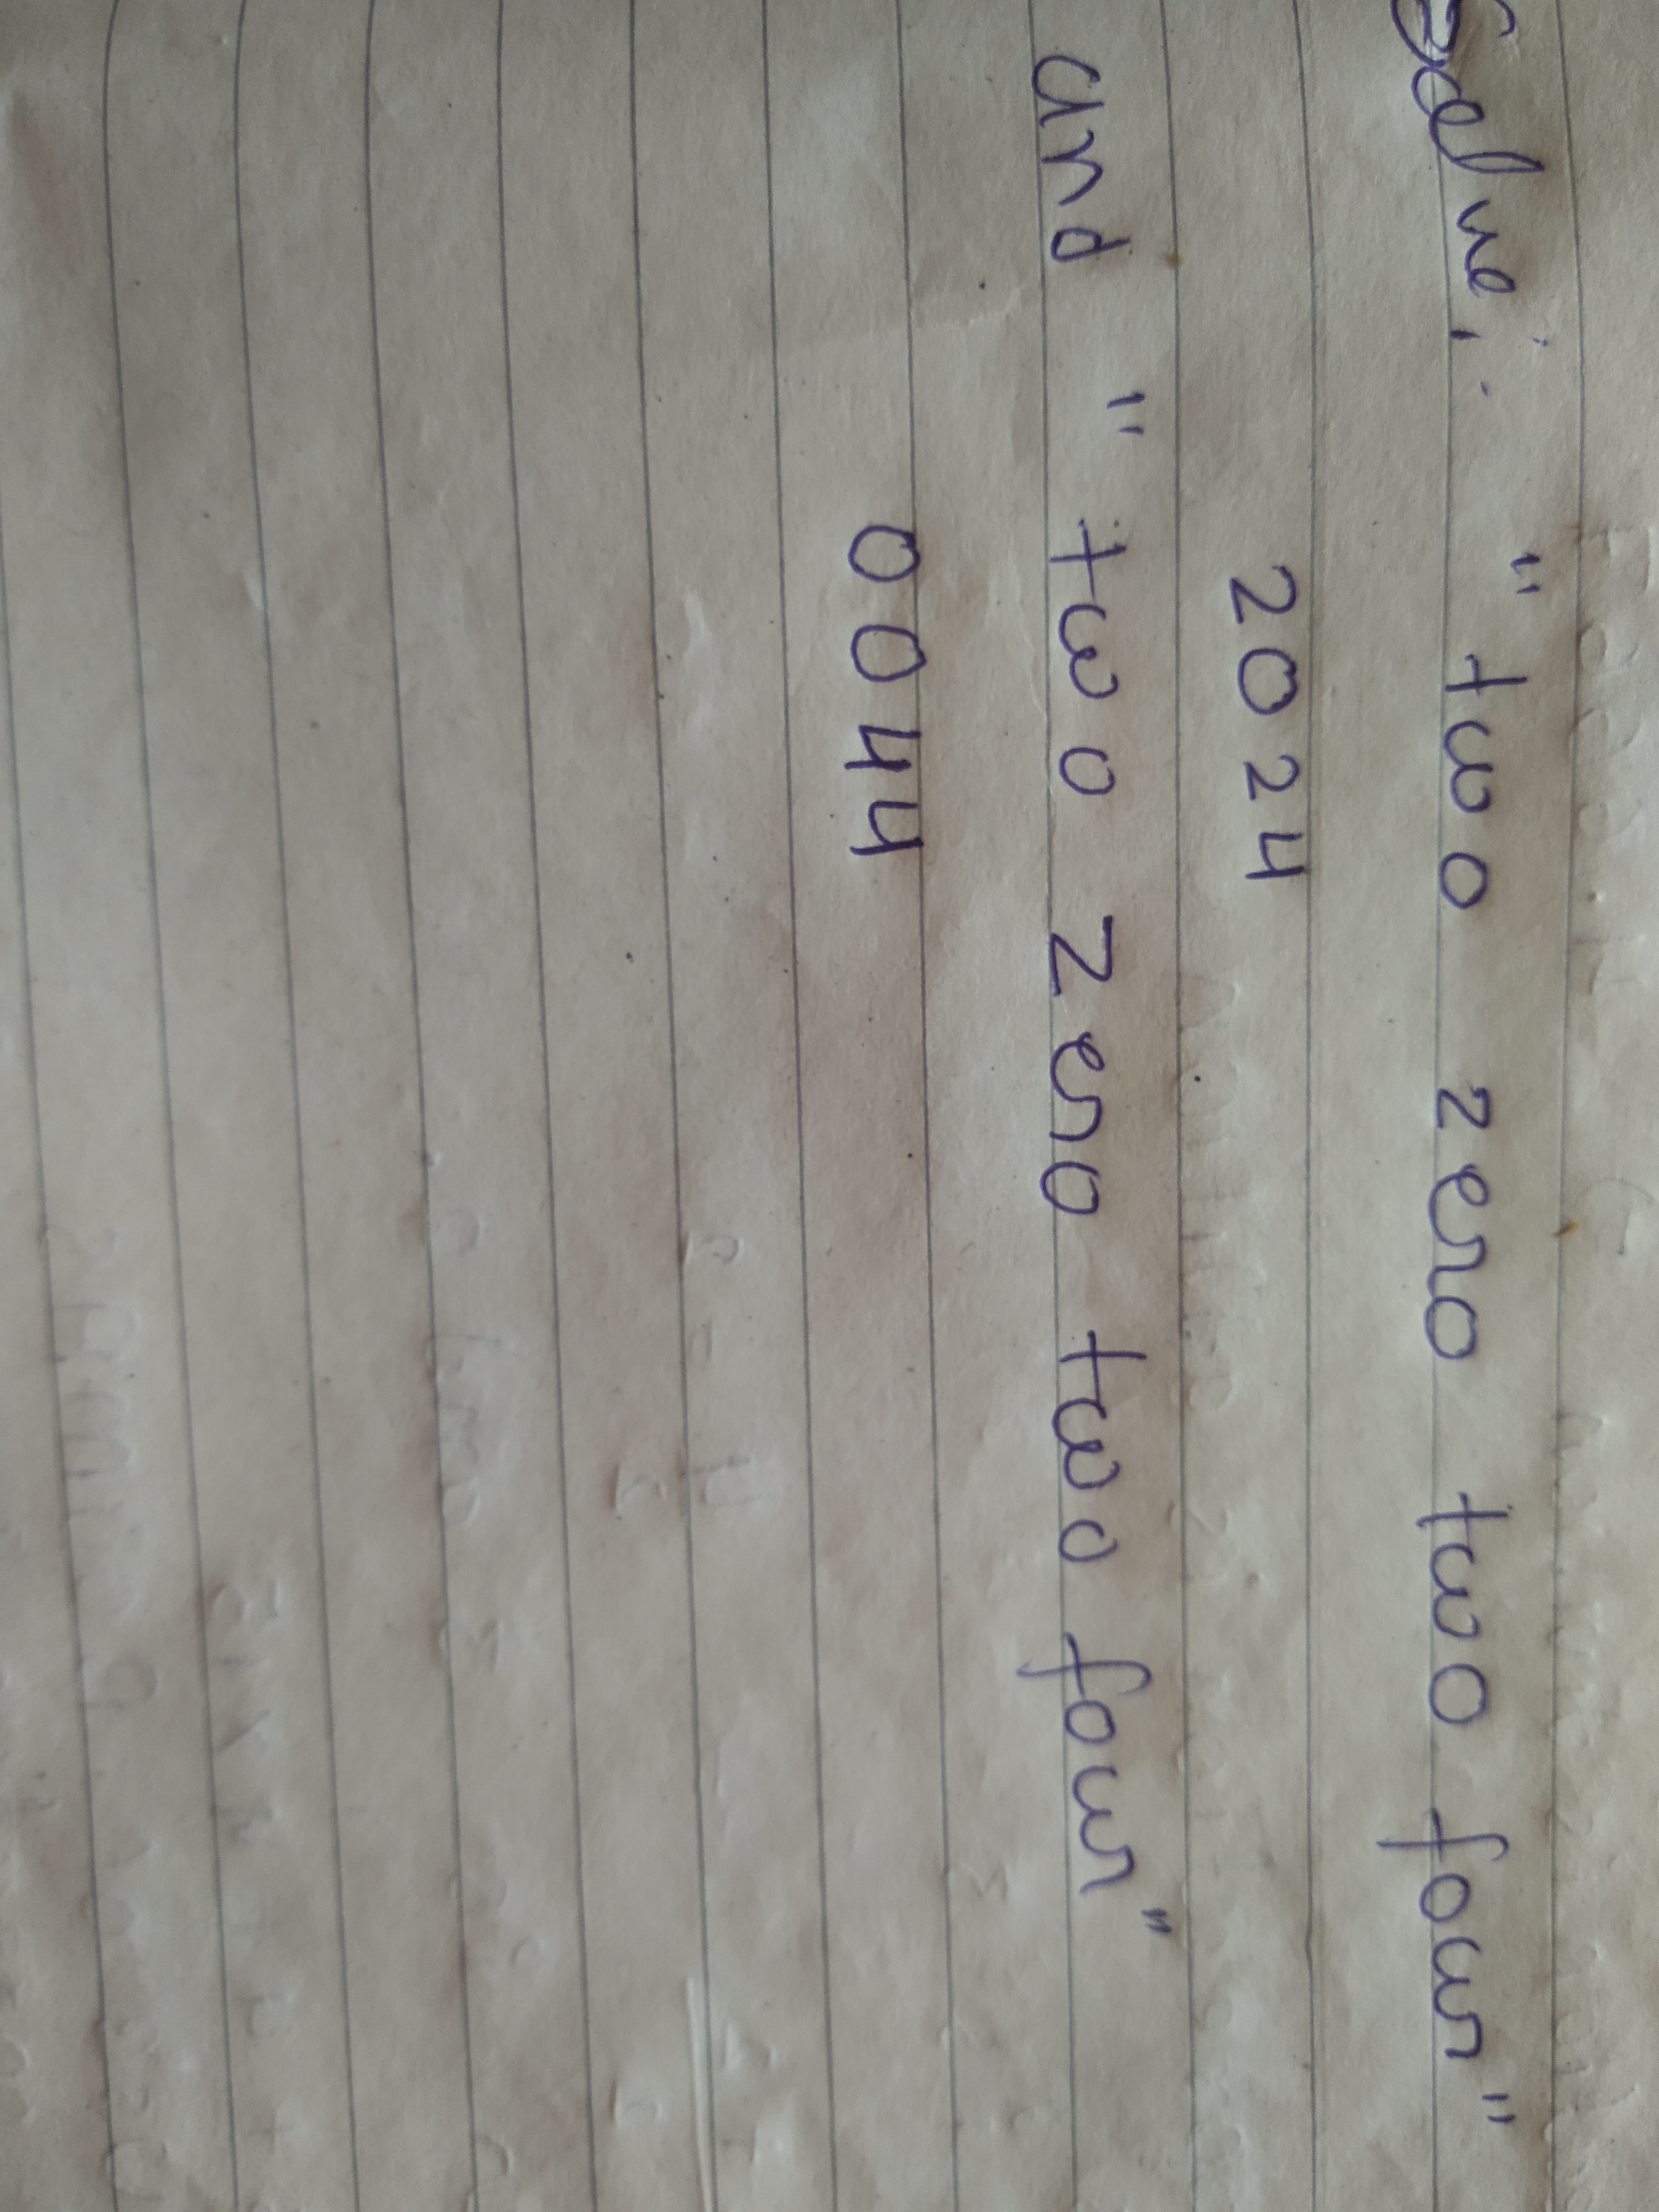 Solve: "two zero two four"
2024
and "two zero two four"
0044